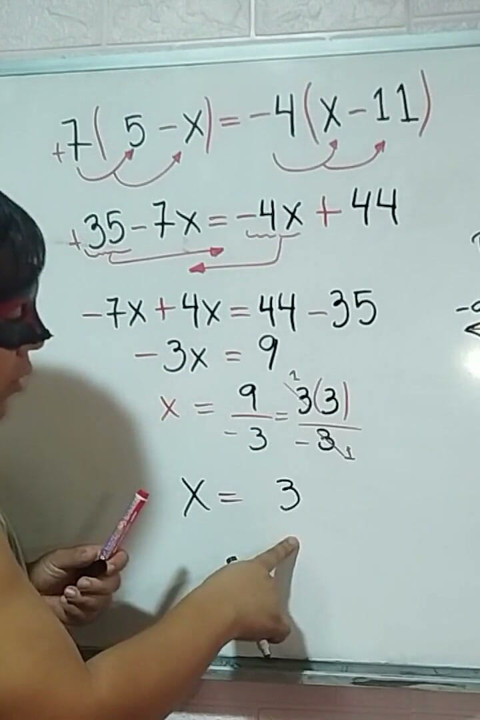 +7(5-x)=-4(x-11)
+35-7x=-4x+44
-7x+4x=44-35
-3x=9
x=9/-3=3(3)/-3
x=3